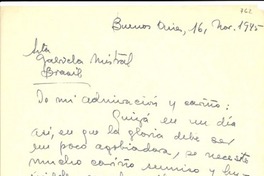 762
Buenos Aires, 16, Nov. 1945
Srta
Gabriela Mistral
Brasil
To mi admiración y cariño:
Quizá en un día
así, en que la gloria debe ser
un poco agobiadora, se necesite
mucho cariño